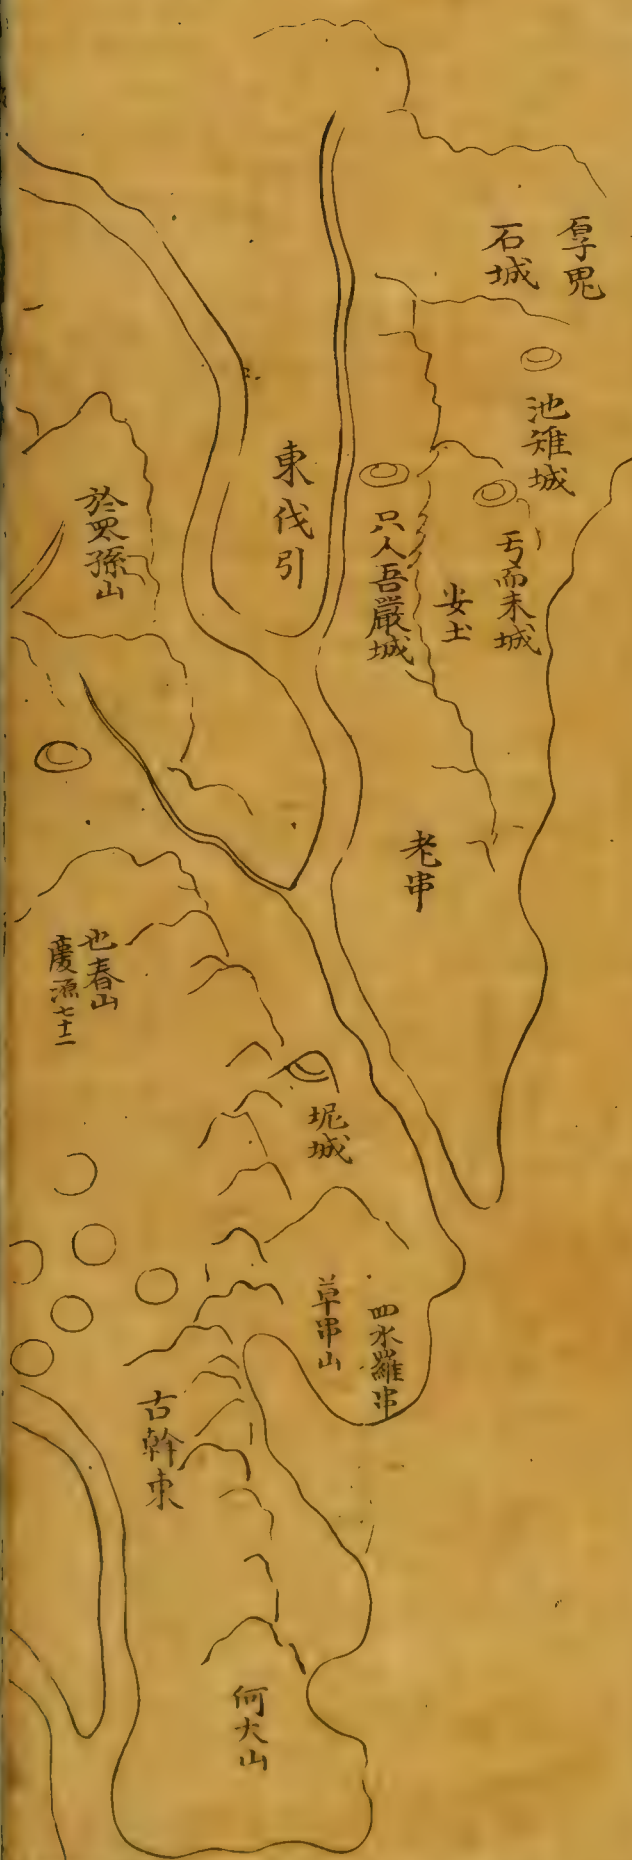 厚鬼
石城
池雉城
丐而未城
安土
只人吾嚴城
東伐引
於罘孫山
老串
也春山
慶源七十二
坭城
草串山
四水羅串
古幹東
何大山